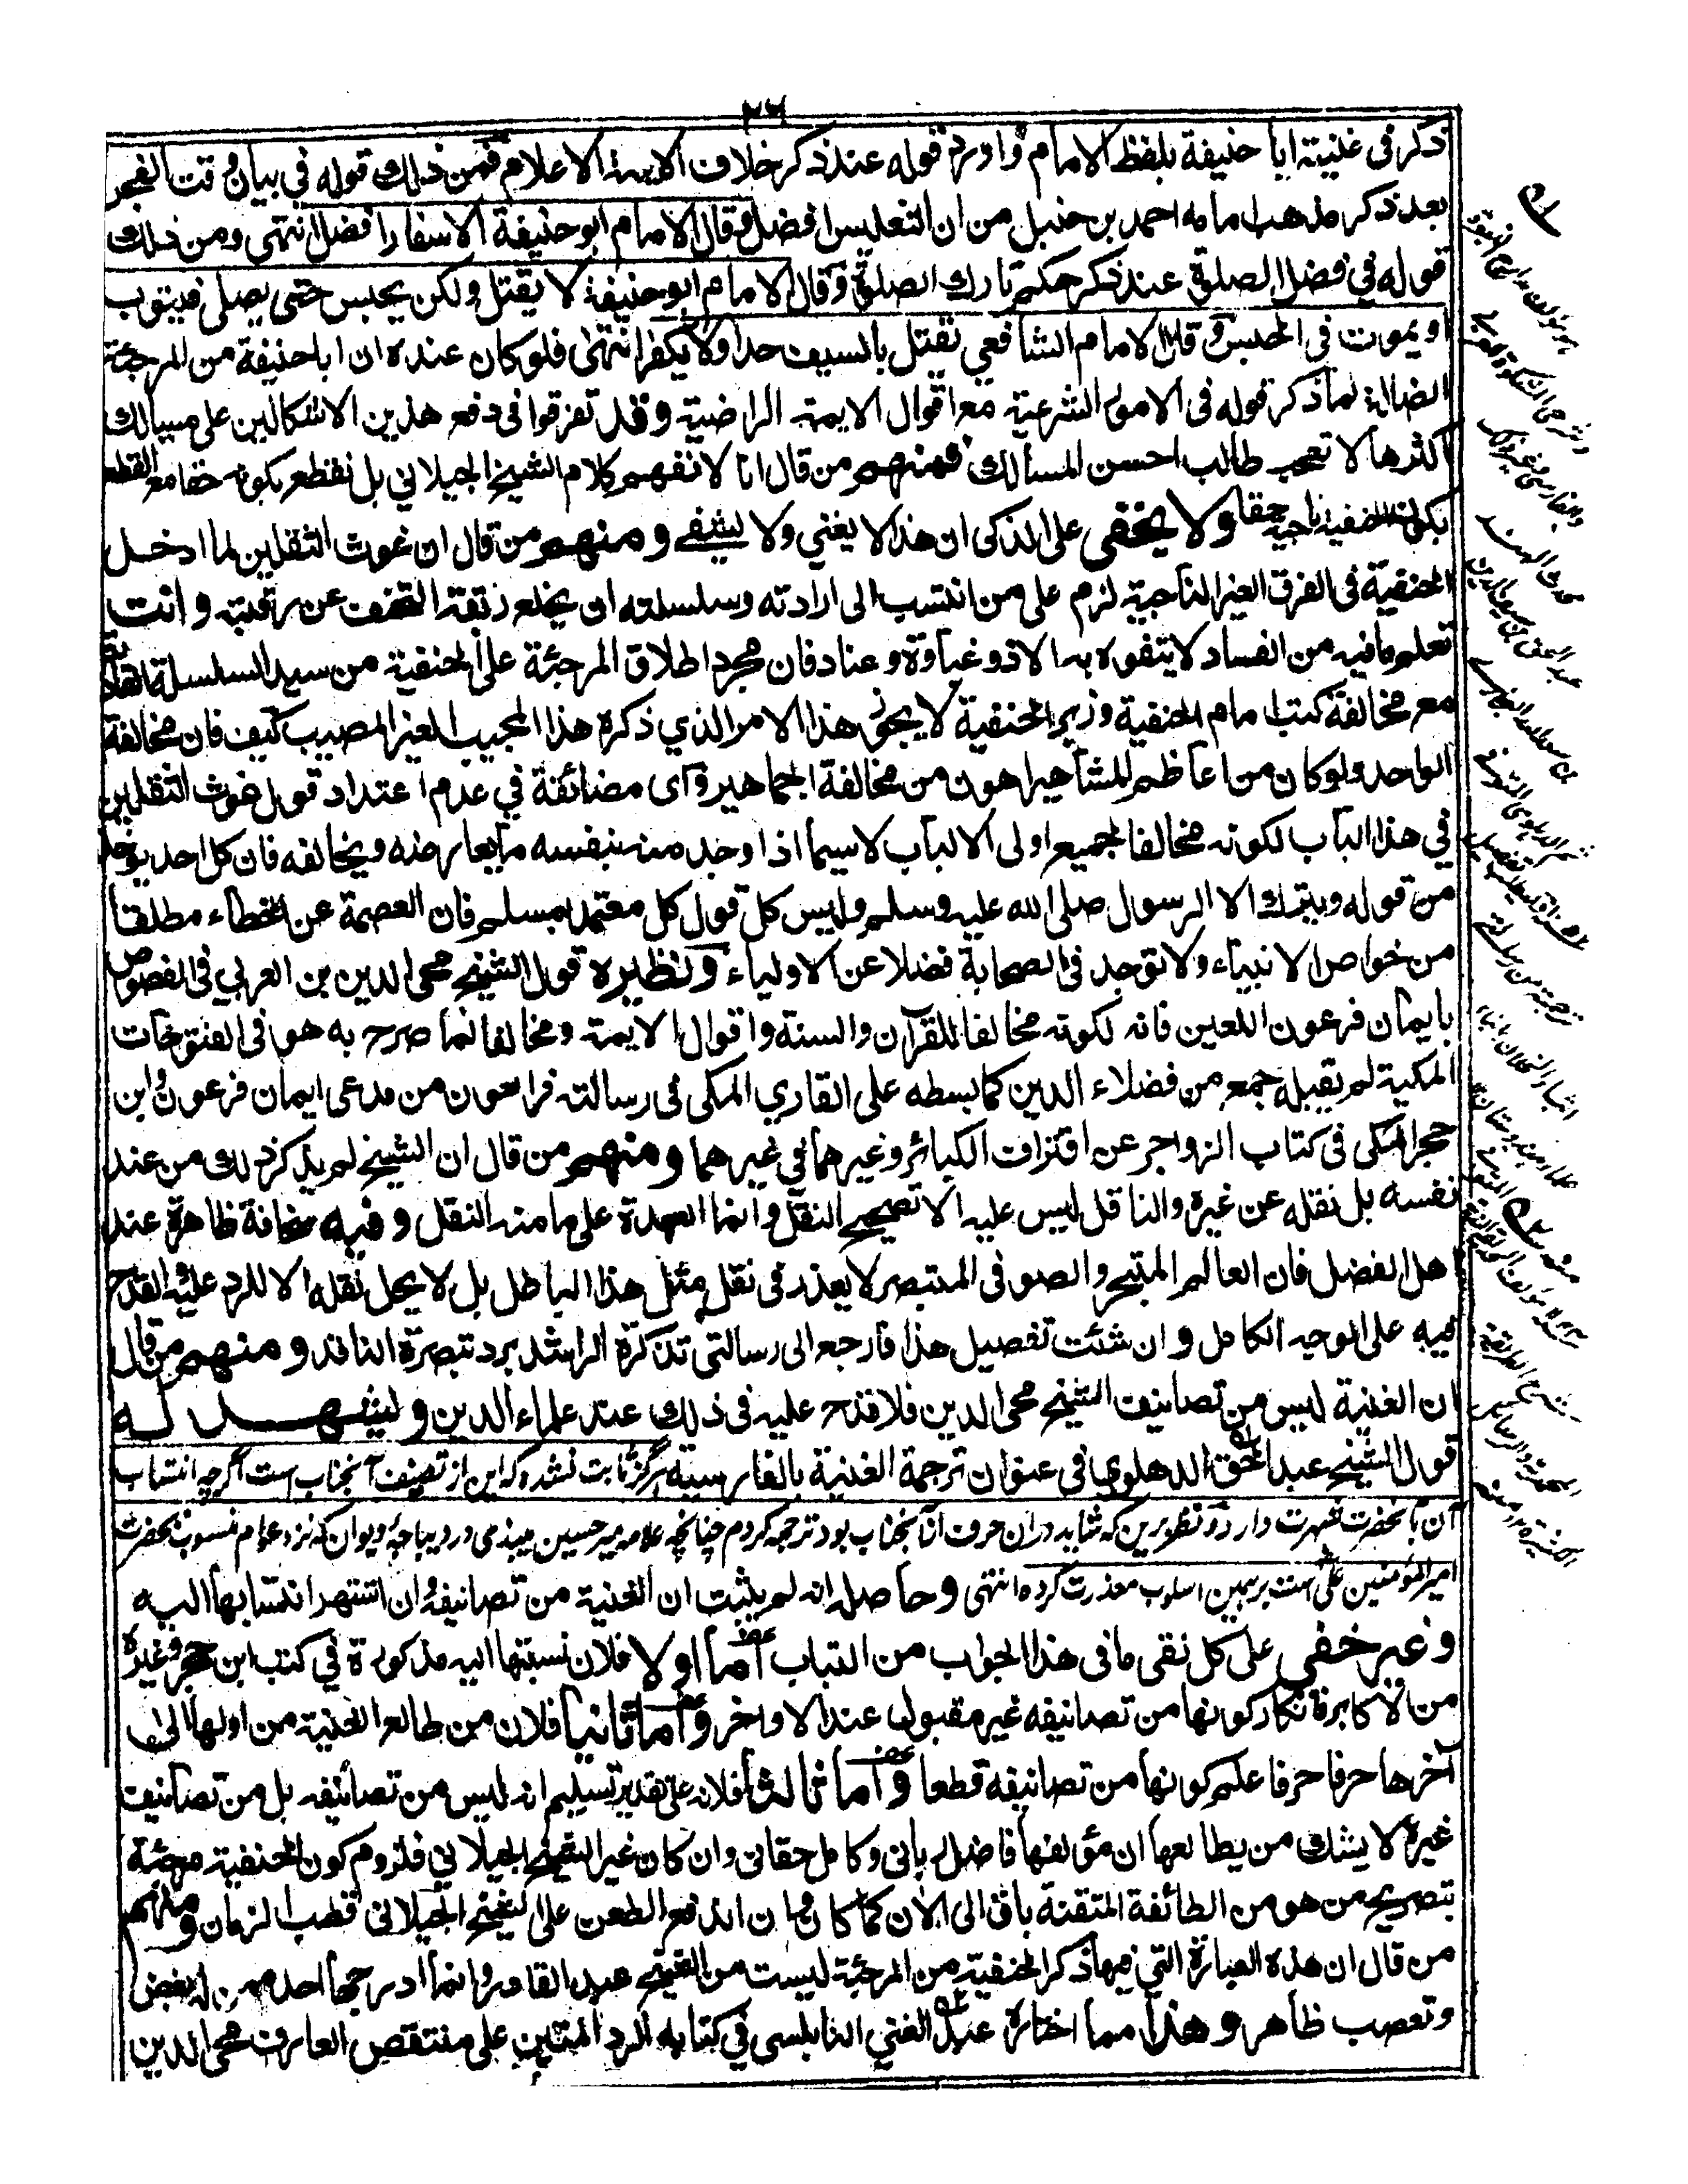 ٢٦
ذكر في غنيته ابا حنيفة بلفظ الامام واورد قوله عند ذكر خلاف الايمة الاعلام فمن ذلك قوله في بيان وقت الفجر
بعد ذكر مذهب امامه احمد بن حنبل من ان التغليس افضل وقال الامام ابو حنيفة الاسفار افضل انتهى ومن ذلك
قوله في فضل الصلوة عند ذكر حكم تارك الصلوة وقال الامام ابو حنيفة لا يقتل ولكن يحبس حتى يصلى فيتوب
او يموت في الحبس وقال الامام الشافعي يقتل بالسيف حدا ولا يكفر انتهى فلو كان عنده ان ابا حنيفة من المرجئة
الضالة لما ذكر قوله في الامور الشرعية مع اقوال الايمة الراضية وقد تفرقوا في دفع هذين الاشكالين على مسالك
اكثرها لا تعجب طالب احسن المسالك فمنهم من قال انا لا نفهم كلام الشيخ الجيلاني بل نقطع بكونه حقا مع القطع
بكون الحنفية ناجية حقا ولا يخفى على الذكى ان هذا لا يغني ولا يشفے ومنهم من قال ان غوث الثقلين لما ادخل
الحنفية في الفرق الغير الناجية لزم على من انتسب الى ارادته وسلسلته ان يخلع ربقة التحنف عن رقبته وانت
تعلم ما فيه من الفساد لا يتفوه به الا ذو غباوة وعناد فان مجرد اطلاق المرجئة على الحنفية من سيد السلسلة القادرية
مع مخالفة كتب امام الحنفية وزبر الحنفية لا يجوز هذا الامر الذي ذكره هذا المجيب الغير المصيب كيف فان مخالفة
الواحد ولو كان من اعاظم المشاهير اهون من مخالفة الجماهير واى مضائقة في عدم اعتداد قول غوث الثقلين
في هذا الباب لكونه مخالفا لجميع اولى الالباب لا سيما اذا وجد منه بنفسه ما يعارضه ويخالفه فان كل احد يوخذ
من قوله ويترك الا الرسول صلى الله عليه وسلم وليس كل قول كل معتمد بمسلم فان العصمة عن الخطاء مطلقا
من خواص الانبياء ولا توجد في الصحابة فضلا عن الاولياء ونظيره قول الشيخ محى الدين بن العربي في الفصوص
بايمان فرعون اللعين فانه لكونه مخالفا للقرآن والسنة واقوال الايمة ومخالفا لما صرح به هو في الفتوحات
المكية لم يقبله جمع من فضلاء الدين كما بسطه على القاري المكى في رسالته فرالعون من مدعى ايمان فرعون وابن
حجر المكى في كتاب الزواجر عن اقتراف الكبائر وغيرهما في غيرهما ومنهم من قال ان الشيخ لم يذكر ذلك من عند
نفسه بل نقله عن غيره والناقل ليس عليه الا تصحيح النقل وانما العهدة على ما منه النقل وفيه سخافة ظاهرة عند
اهل الفضل فان العالم المتبحر والصوفي المتبصر لا يعذر في نقل مثل هذا الباطل بل لا يحل نقله الا للرد عليه والقدح
فيه على الوجه الكامل وان شئت تفصيل هذا فارجع الى رسالتي تذكرة الراشد برد تبصرة الناقد ومنهم من قال
ان الغنية ليس من تصانيف الشيخ محى الدين فلا قدح عليه في ذلك عند علماء الدين ويشهد له
قول الشيخ عبد الحق الدهلوي في عنوان ترجمة الغنية بالفارسية هرگز ثابت نشده كه اين از تصنيف آنجناب است اگرچه انتساب
آن بآنحضرت شهرت دارد ونظر برين كه شايد دران حرف از آنجناب بود ترجمه كردم چنانچه علامه مير حسين ميبذى در ديباچه ديوان كه نزد عوام منسوب بحضرت
امير المؤمنين على است برهمين اسلوب معذرت كرده انتهى وحاصله انه لم يثبت ان الغنية من تصانيفه وان اشتهر انتسابها اليه
وغير خفي على كل نقى ما في هذا الجواب من التباب اما اولا فلان نسبتها اليه مذكورة في كتب ابن حجر وغيره
من الاكابر فانكار كونها من تصانيفه غير مقبول عند الاواخر واما ثانيا فلان من طالع الغنية من اولها الى
آخرها حرفا حرفا علم كونها من تصانيفه قطعا واما ثالثا فلانه على تقدير تسليم انه ليس من تصانيفه بل من تصانيف
غيره لا يشك من يطالعها ان مؤلفها فاضل رباني وكامل حقاني وان كان غير الشيخ الجيلاني فلزوم كون الحنفية مرجئة
بتصريح من هو من الطائفة المتقنة باق الى الآن كما كان وان اندفع الطعن على الشيخ الجيلاني قطب الزمان ومنهم
من قال ان هذه العبارة التي فيها ذكر الحنفية من المرجئة ليست من الشيخ عبد القادر وانما ادرجها احد ممن له بغض
وتعصب ظاهر وهذا مما اختاره عبد الغني النابلسي في كتابه الرد المتين على منتقص العارف محى الدين